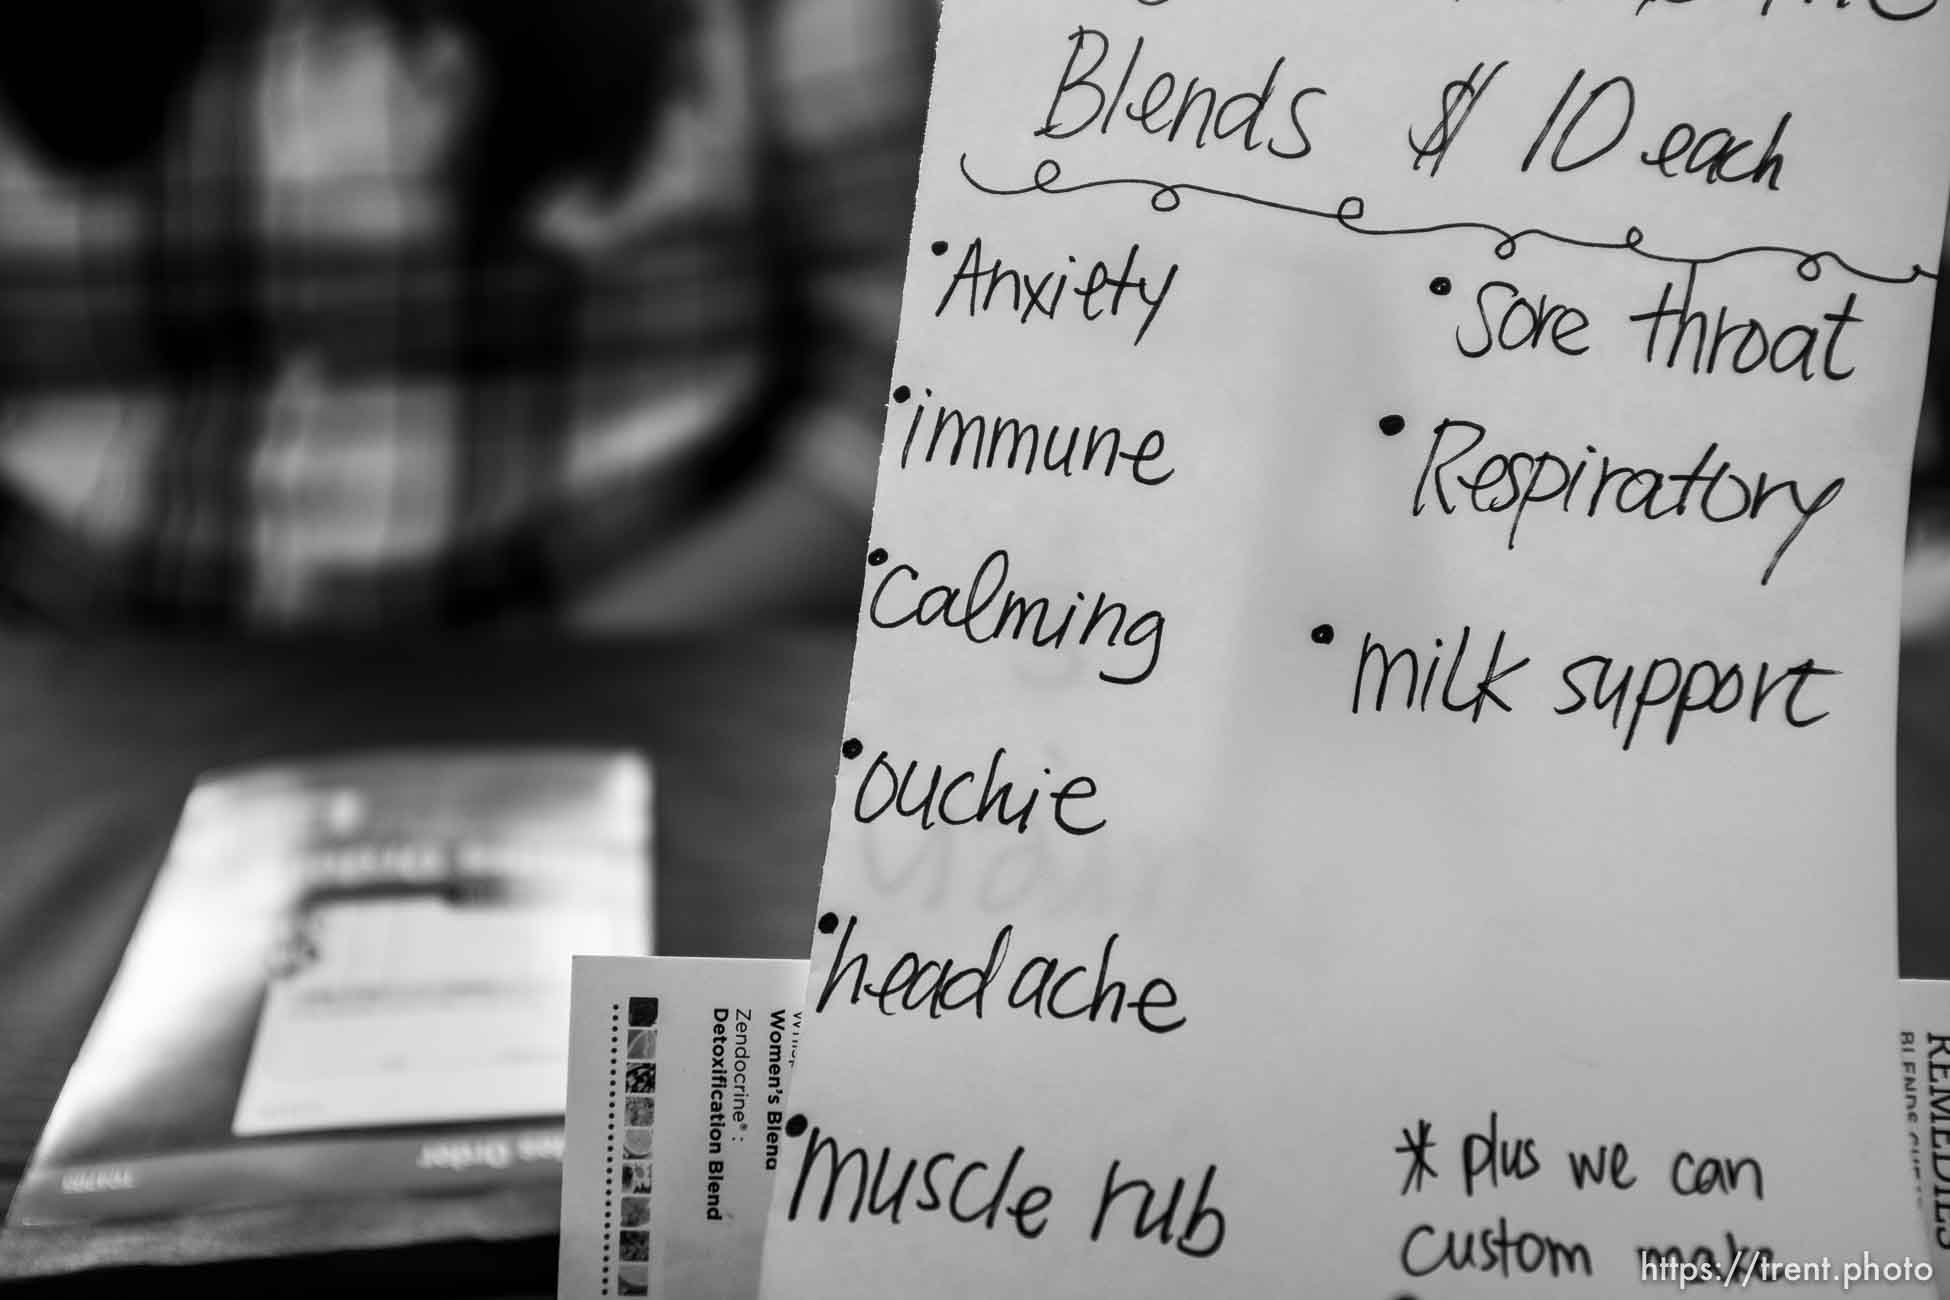 Blends $10 each
• Anxiety
• immune
• calming
• ouchie
• headache
• muscle rub
• Sore throat
• Respiratory
• milk support
* plus we can
custom make
Women's Blend
Zendocrine®:
Detoxification Blend
REMEDIES
https://trent.photo